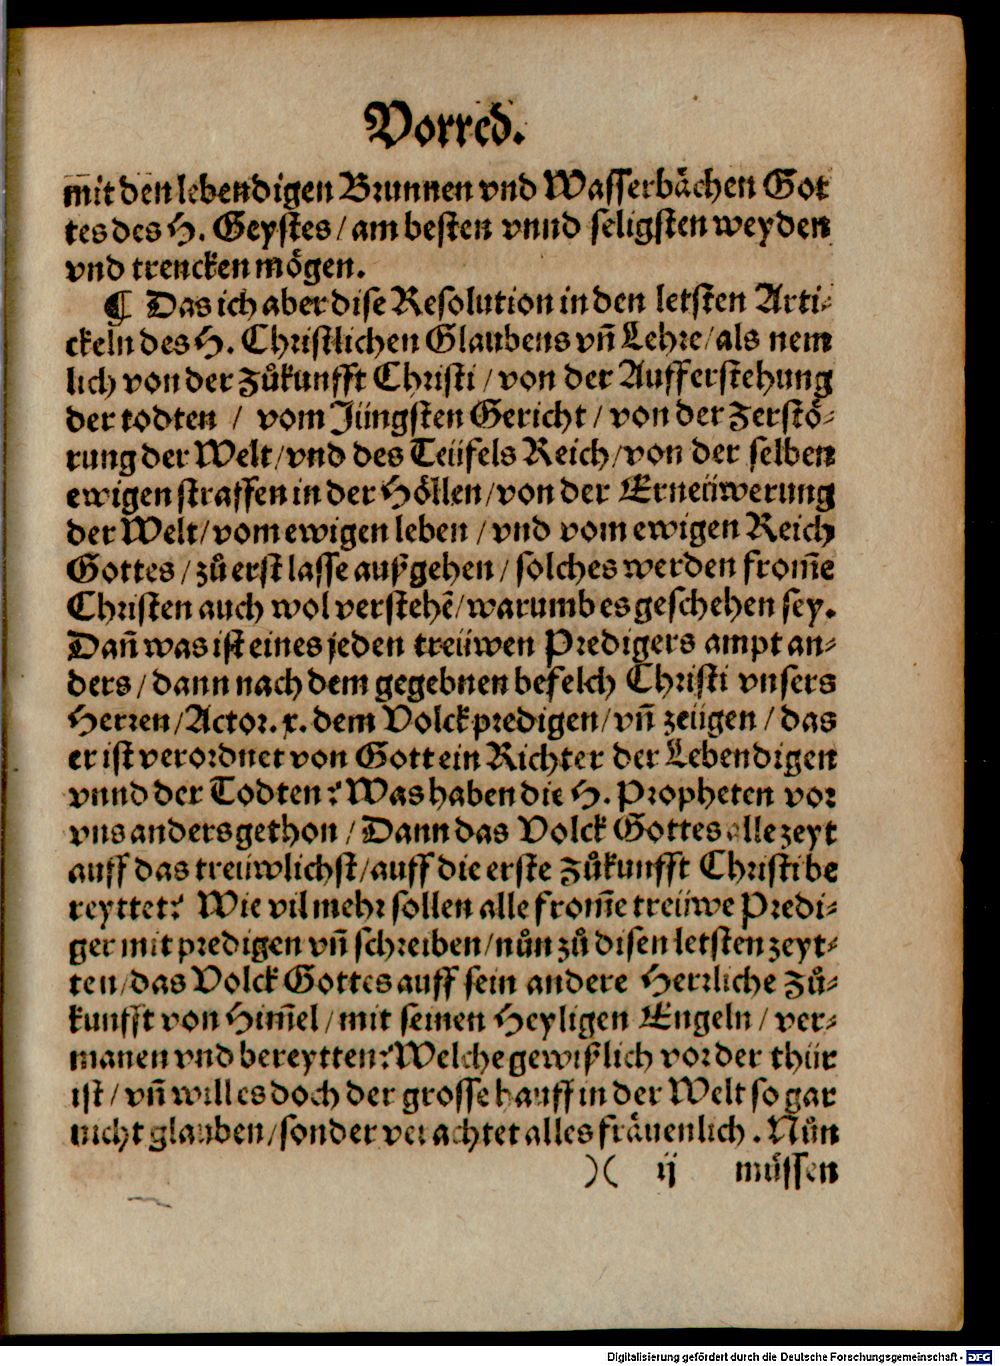 Vorred.
mit den lebendigen Brunnen vnd Wasserbaͤchen Got
tes des H. Geystes / am besten vnnd seligsten weyden
vnd trencken moͤgen.
¶ Das ich aber dise Resolution in den letsten Arti⸗
ckeln des H. Christlichen Glaubens vñ Lehre / als nem
lich von der Zůkunfft Christi / von der Aufferstehung
der todten / vom Jüngsten Gericht / von der Zerstoͤ⸗
rung der Welt / vnd des Teüfels Reich / von der selben
ewigen straffen in der Hoͤllen / von der Erneüwerung
der Welt / vom ewigen leben / vnd vom ewigen Reich
Gottes / zů erst lasse außgehen / solches werden from̃e
Christen auch wol verstehẽ / warumb es geschehen sey.
Dañ was ist eines jeden treüwen Predigers ampt an⸗
ders / dann nach dem gegebnen befelch Christi vnsers
Herren / Actor. x. dem Volck predigen / vñ zeügen / das
er ist verordnet von Gott ein Richter der Lebendigen
vnnd der Todten? Was haben die H. Propheten vor
vns anders gethon / Dann das Volck Gottes alle zeyt
auff das treüwlichst / auff die erste Zůkunfft Christi be
reyttet? Wie vil mehr sollen alle from̃e treüwe Predi⸗
ger mit predigen vñ schreiben / nůn zů disen letsten zeyt⸗
ten / das Volck Gottes auff sein andere Herrliche Zů⸗
kunfft von Him̃el / mit seinen Heyligen Engeln / ver⸗
manen vnd bereytten? Welche gewißlich vor der thür
ist / vñ will es doch der grosse hauff in der Welt so gar
nicht glauben / sonder verachtet alles fraͤuenlich. Nůn
)( ij müssen
Digitalisierung gefördert durch die Deutsche Forschungsgemeinschaft - DFG